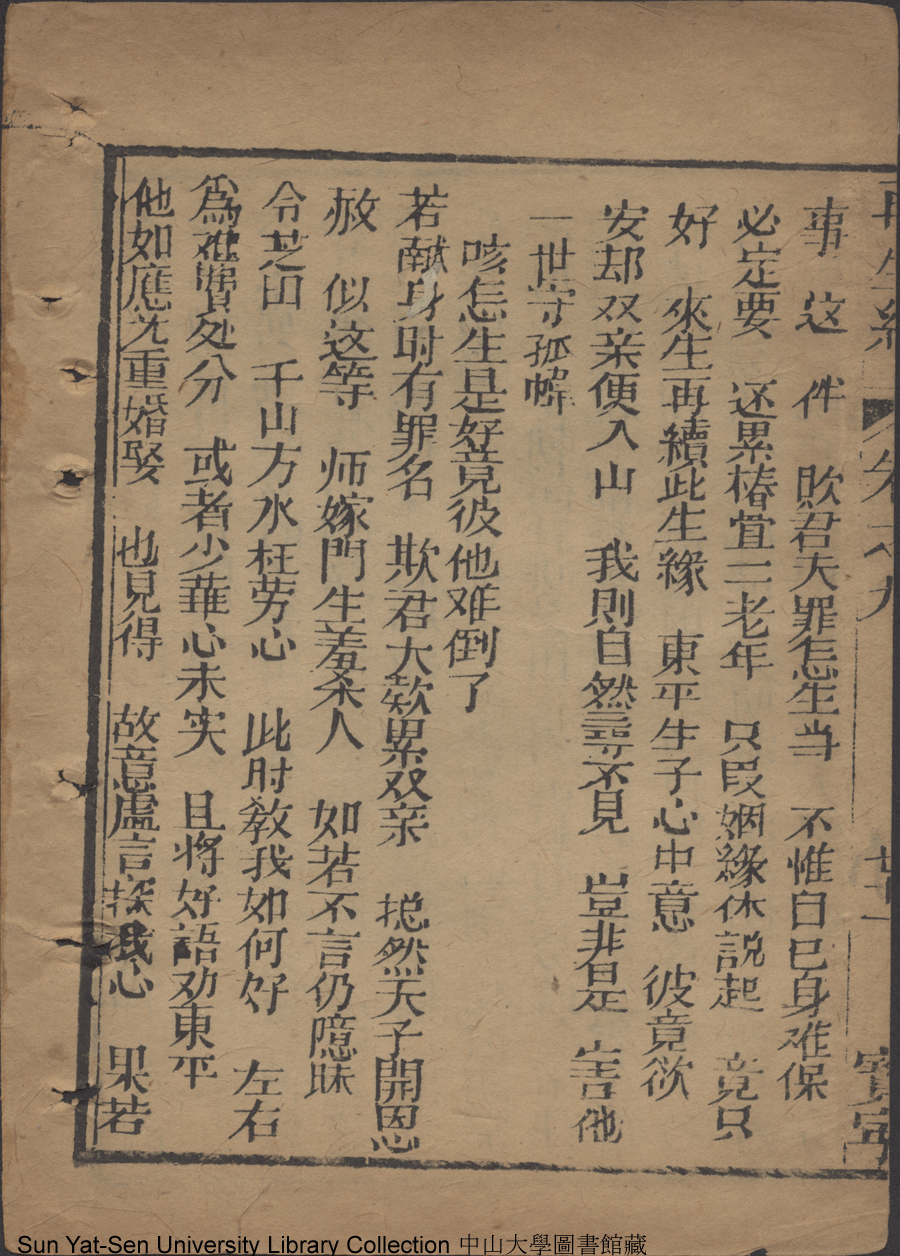 再生緣 卷之九 廿一 寳寧
事 这 件 欺君大罪怎生当 不惟自已身难保
必定要 还累椿宜二老年 只叚姻緣休説起 竟只
好 來生再續此生緣 東平生子心中意 彼竟欲
安却双亲便入山 我則自然尋不見 豈非是 害他
一世守孤幃
咳怎生是好竟彼他难倒了
若献身时有罪名 欺君大欵累双亲 揔然天子開恩
赦 似这等 师嫁門生羞杀人 如若不言仍隱昧
令芝田 千山方水枉劳心 此时教我如何好 左右
爲难費处分 或者少華心未实 且将好語劝東平
他如應允重婚娶 也見得 故意虛言探我心 果若
Sun Yat-Sen University Library Collection 中山大學圖書館藏